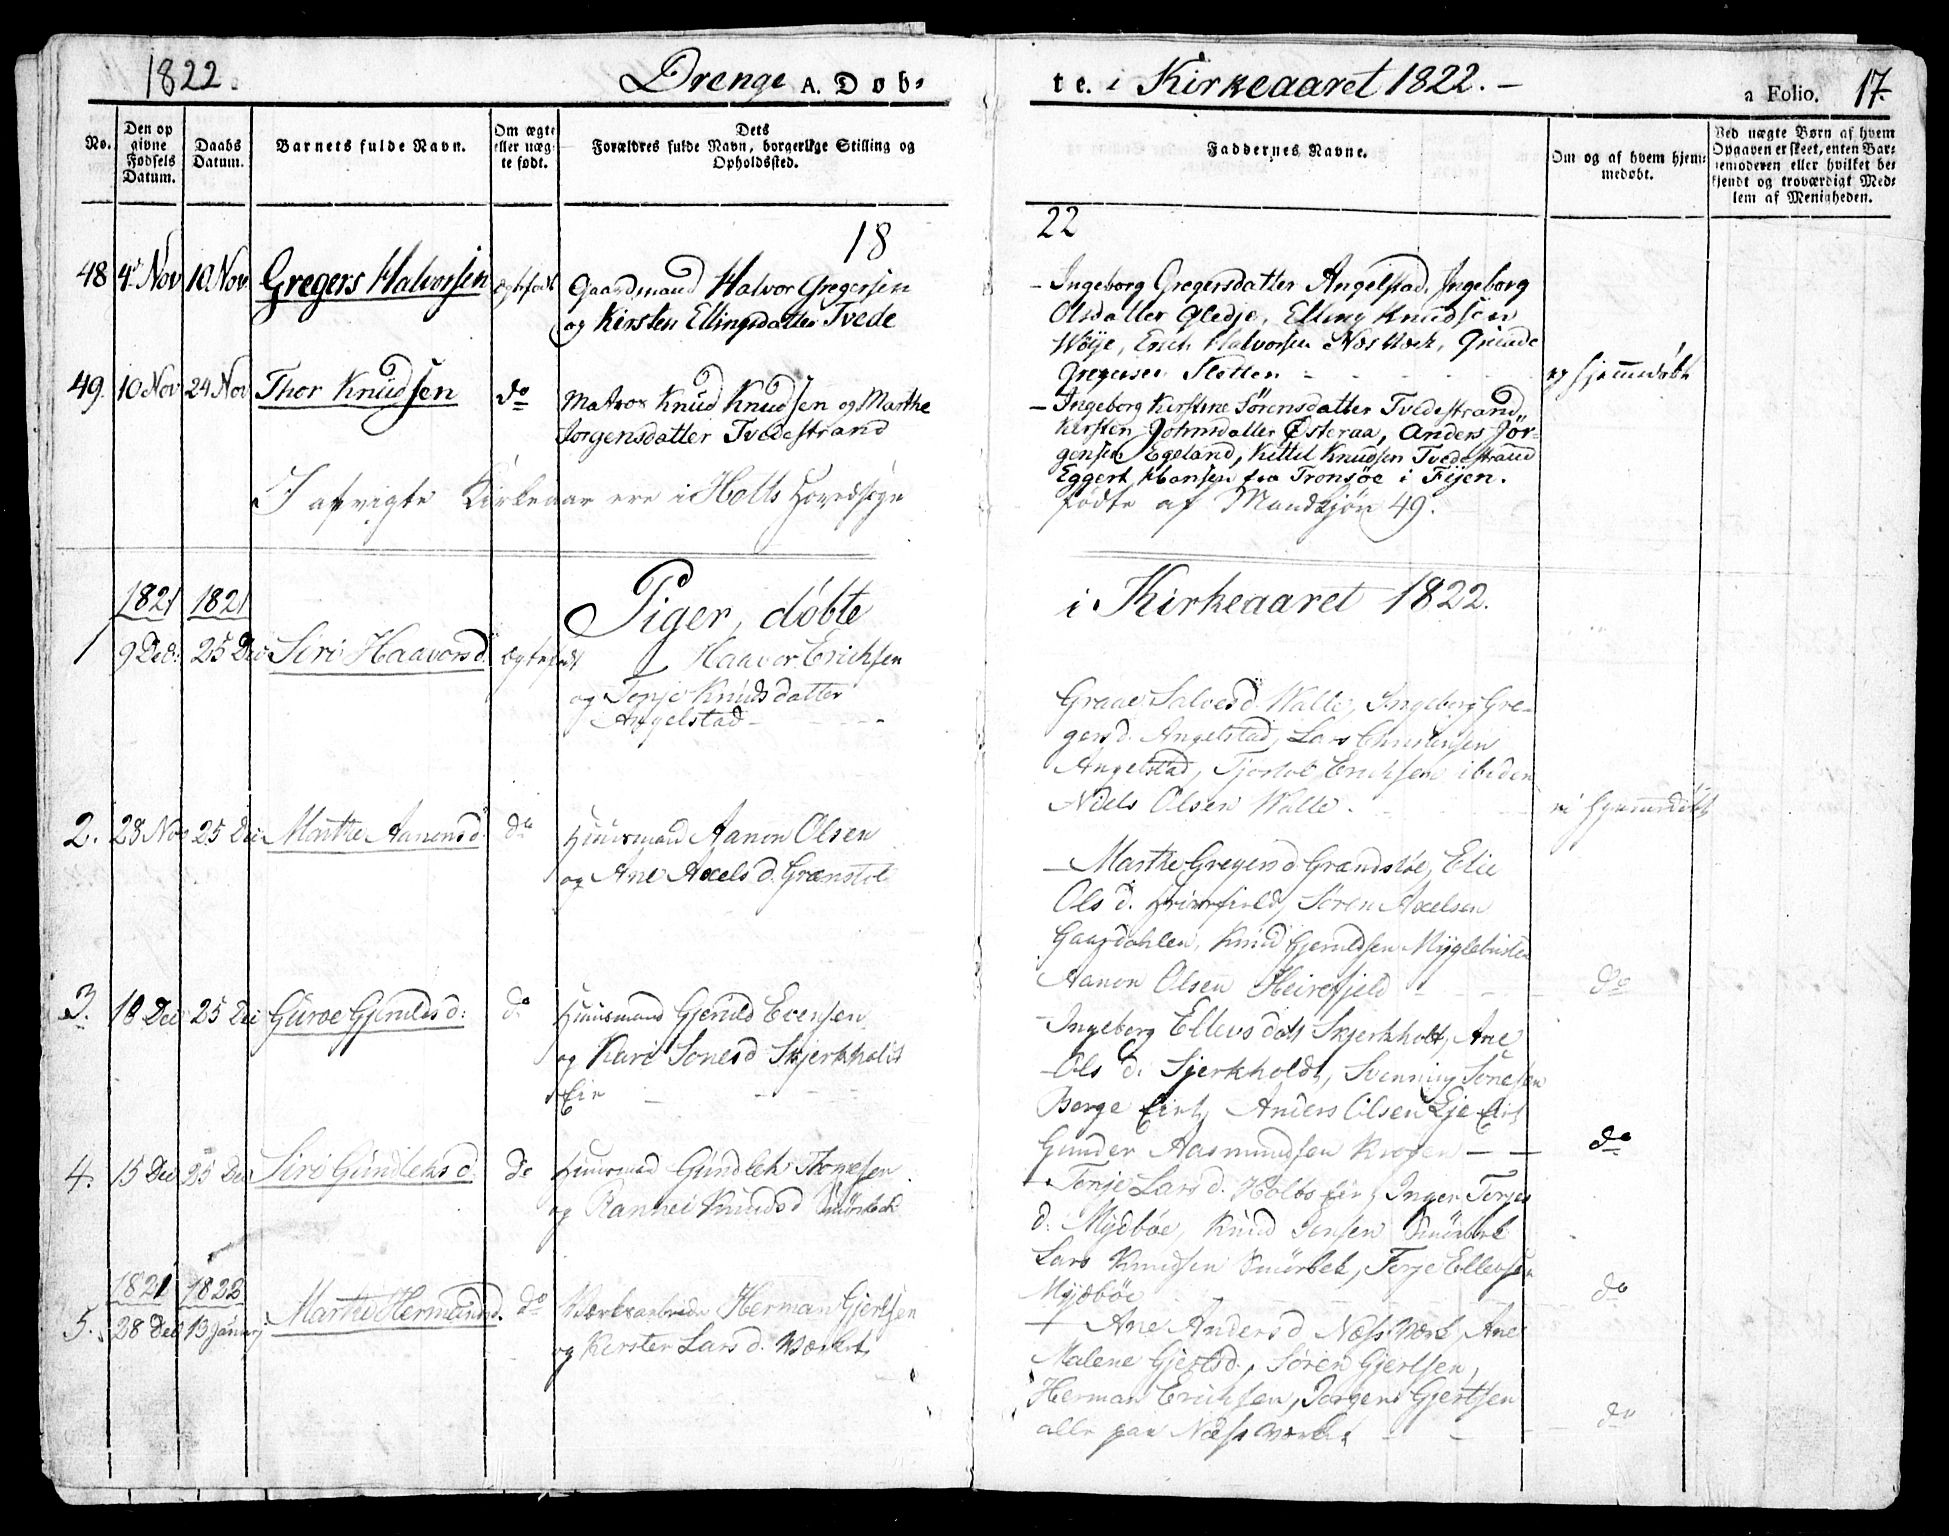 1822.
Drenge A. Døb-
te. i Kirkeaaret 1822. –
a Folio. 17.
No.
Den op
givne
Fødsels
Datum.
Daabs
Datum.
Barnets fulde Navn.
Om ægte
eller uæg-
te født.
Dets
Forældres fulde Navn, borgerlige Stilling og
Opholdssted.
Faddernes Navne.
Om og af hvem hjem-
medøbt.
Ved uægte Børn af hvem
Opgaven er skeet, enten Bar-
nemoderen eller hvilket be-
kjendt og troværdigt Med-
lem af Menigheden.
18
22
48 4de Nov 10 Nov Gregers Halvorsen ægtefødt Gaardmand Halvor Gregersen
og Kirsten Ellingsdatter Tvede
– Ingeborg Gregersdatter Angelstad, Ingeborg
Olsdatter Gledje, Elling Knudsen
Høije, Erich Halvorsen Næs Værk,
Gregersen Sletten – ej hjemmedøbt
49. 10 Nov 24 Nov Thor Knudsen do Matros Knud Knudsen og Marthe
Jørgensdatter Tvedestrand
– Ingeborg Kirstine Sørensdatter Tvedestrand,
Kirsten Johnsdatter Østeraa, Anders Jør-
gensen Egeland, Kittel Knudsen Tvedestrand
Eggert Hansen fra Tronsøe i Fijen.
I afvigte Kirkeaar ere i Holts Hovedsogn
fødte af Mandkjøn 49.
Piger, døbte
i Kirkeaaret 1822.
1821 1821
1 9 Dec: 25 Dec Siri Haavorsd. ægtefødt Haavor Erichsen
og Tonje Knudsdatter
Angelstad –
Graae Salvesd. Walle, Ingeborg Gre-
gersd. Angelstad, Lars Christensen
Angelstad, Tjostol Erichsen ibiden
Niels Olsen Walle. – ei hjemmedøbt
2. 28 Nov 25 Dec Marthe Aanensd. do Huusmand Aanon Olsen
og Ane Axelsd. Grænstøl
– Marthe Gregersd Grændstøl, Elie
Ols d. Søren Axelsen
Knud Gjeruldsen
Aanon Olsen Heirefjeld – do
3. 18 Dec 25 Dec Guroe Gjeruldsd: do Huusmand Gjeruld Evensen
og Kari Sonesd Skjerkholt
Eie –
– Ingeborg Ellevsdatt Skjerkholt, Ane
Ols d: Sjerkholdt, Svenning Sonesen
Borge Anders Olsen Eje
Gunder Aasmundsen – – do
4. 15 Dec 25 Dec Siri Gundleksd: do Huusmand Gundlek
og Rannei Knudsd Smörbek
– Tonje Larsd. Inger Terjes
d. Mydbøe, Knud Jensen Smörbek
Lars Knudsen Smörbek, Terje Ellevsen
Mydbøe – do
1821 1822
5. 28 Dec 13 Januarj Marthe Hermansd. do Værksarbeider Herman Gjertsen
og Kirsten Larsd. Værket
– Ane Andersd Næs Værk, Ane
Malene Gjertsd., Søren Gjertsen,
Herman Erichsen, Jørgen Gjertsen
alle paa Næss Værk – do